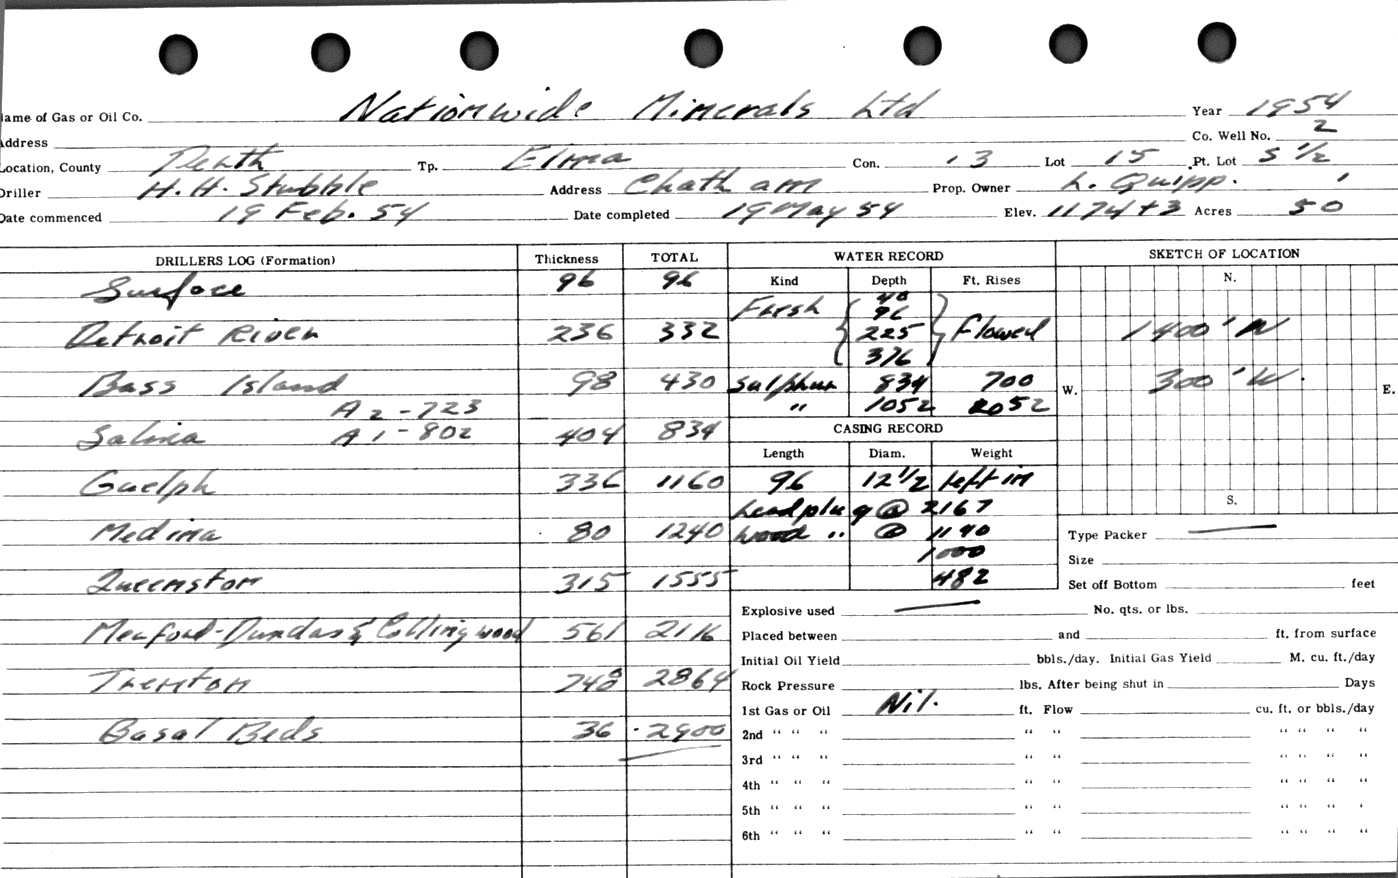 Name of Gas or Oil Co. Nationwide Minerals Ltd Year 1954
Address Co. Well No. 2
Location, County Perth Tp. Elma Con. 13 Lot 15 Pt. Lot S 1/2
Driller H. H. Stubble Address Chatham Prop. Owner L. Quipp.
Date commenced 19 Feb. 54 Date completed 19 May 54 Elev. 1174+3 Acres 50
DRILLERS LOG (Formation) Thickness TOTAL
Surface 96 96
Detroit River 236 332
Bass Island 98 430
A2 - 723
Salina A1 - 802 404 834
Guelph 336 1160
Medina 80 1240
Queenston 315 1555
Meaford-Dundas & Collingwood 561 2116
Trenton 748 2864
Basal Beds 36 2900
WATER RECORD
Kind Depth Ft. Rises
Fresh 40
96
225 flowed
376
Sulphur 834 700
" 1052
CASING RECORD
Length Diam. Weight
96 12 1/2 left in
Lead plug @ 2167
wood " @ 1190
1000
482
SKETCH OF LOCATION
N.
1400' N
300' W.
W. E.
S.
Type Packer —
Size
Set off Bottom feet
Explosive used — No. qts. or lbs.
Placed between and ft. from surface
Initial Oil Yield bbls./day. Initial Gas Yield M. cu. ft./day
Rock Pressure lbs. After being shut in Days
1st Gas or Oil Nil. ft. Flow cu. ft. or bbls./day
2nd " " " " " " " " "
3rd " " " " " " " " "
4th " " " " " " " " "
5th " " " " " " " " '
6th " " " " " " " " "